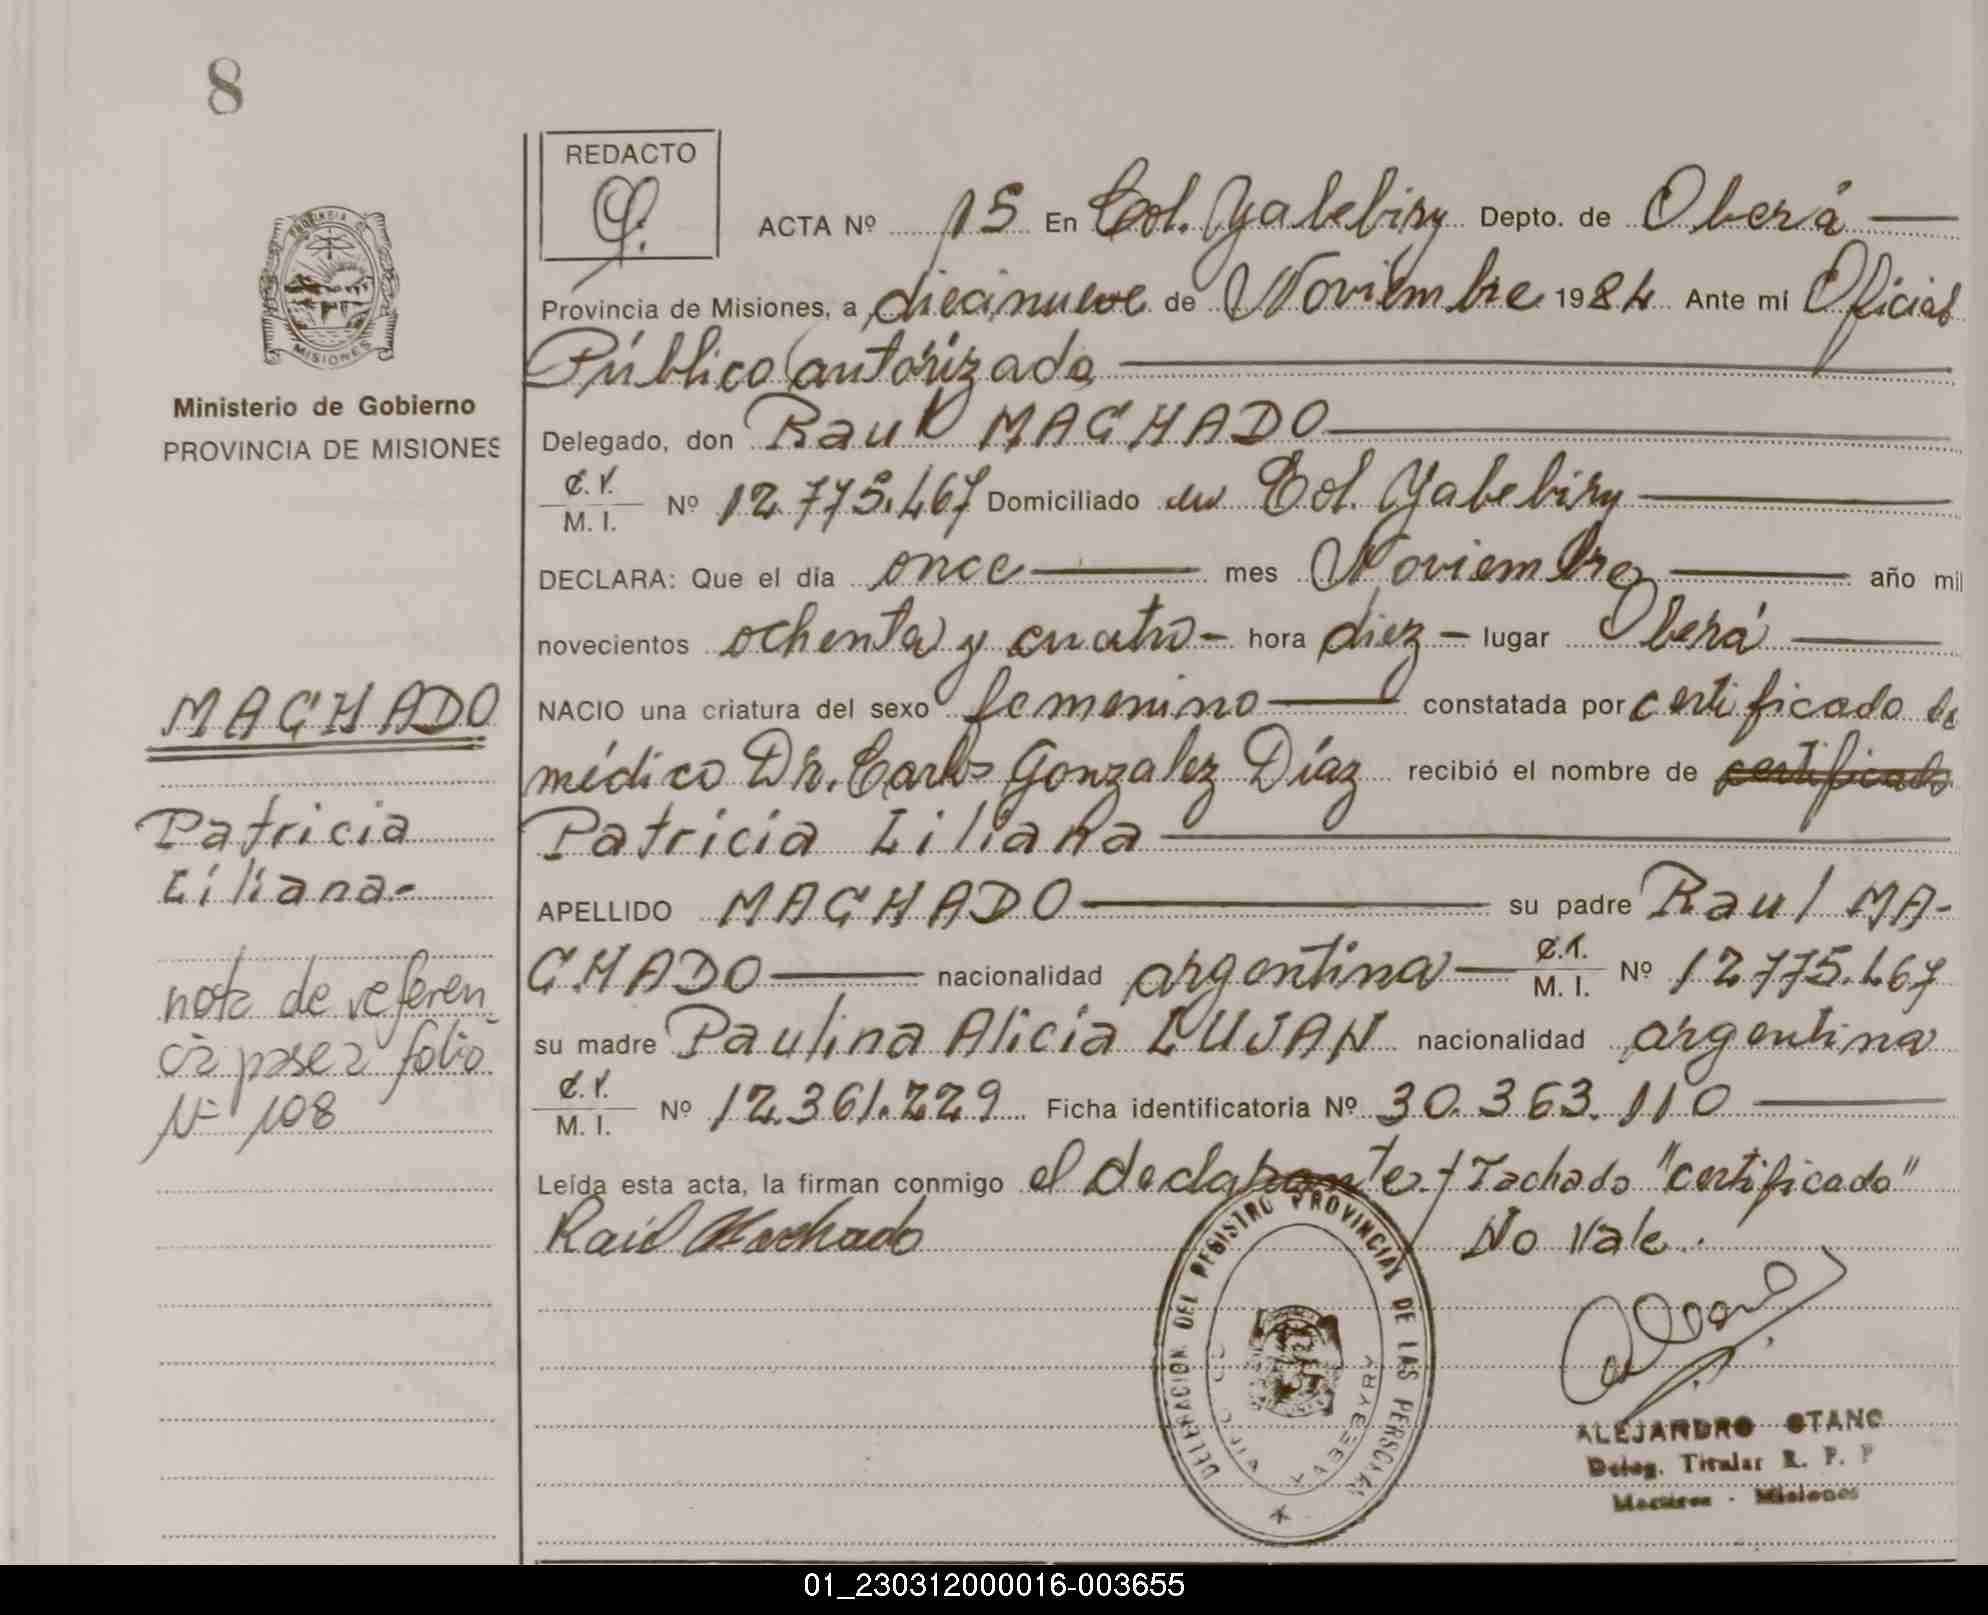 8
REDACTO
ACTA Nº 15 En Col. Yabebiry Depto. de Oberá
Provincia de Misiones, a diecinueve de Noviembre 1984 Ante mi Oficial
Público autorizado
Delegado, don Raul MACHADO
C.I.
M. I. Nº 12.775.467 Domiciliado en Col. Yabebiry
DECLARA: Que el dia once mes Noviembre año mil
novecientos ochenta y cuatro - hora diez - lugar Oberá
NACIO una criatura del sexo femenino constatada por certificado de
médico Dr. Carlos Gonzalez Díaz recibió el nombre de certificado
Patricia Liliana
APELLIDO MACHADO su padre Raul MA-
CHADO nacionalidad argentina C.I.
M. I. Nº 12.775.467
su madre Paulina Alicia LUJAN nacionalidad argentina
C.I.
M. I. Nº 12.361.229 Ficha identificatoria Nº 30.363.110
Leída esta acta, la firman conmigo el declarante. Tachado "certificado"
Raúl Machado No Vale.
PROVINCIA DE
MISIONES
Ministerio de Gobierno
PROVINCIA DE MISIONES
MACHADO
Patricia
Liliana-
nota de referen
cia pase a folio
Nº 108
DELEGACION DEL REGISTRO PROVINCIAL DE LAS PERSONAS
COLONIA YABEBYRY
ALEJANDRO OTANO
Deleg. Titular R. P. P
Misiones
01_230312000016-003655